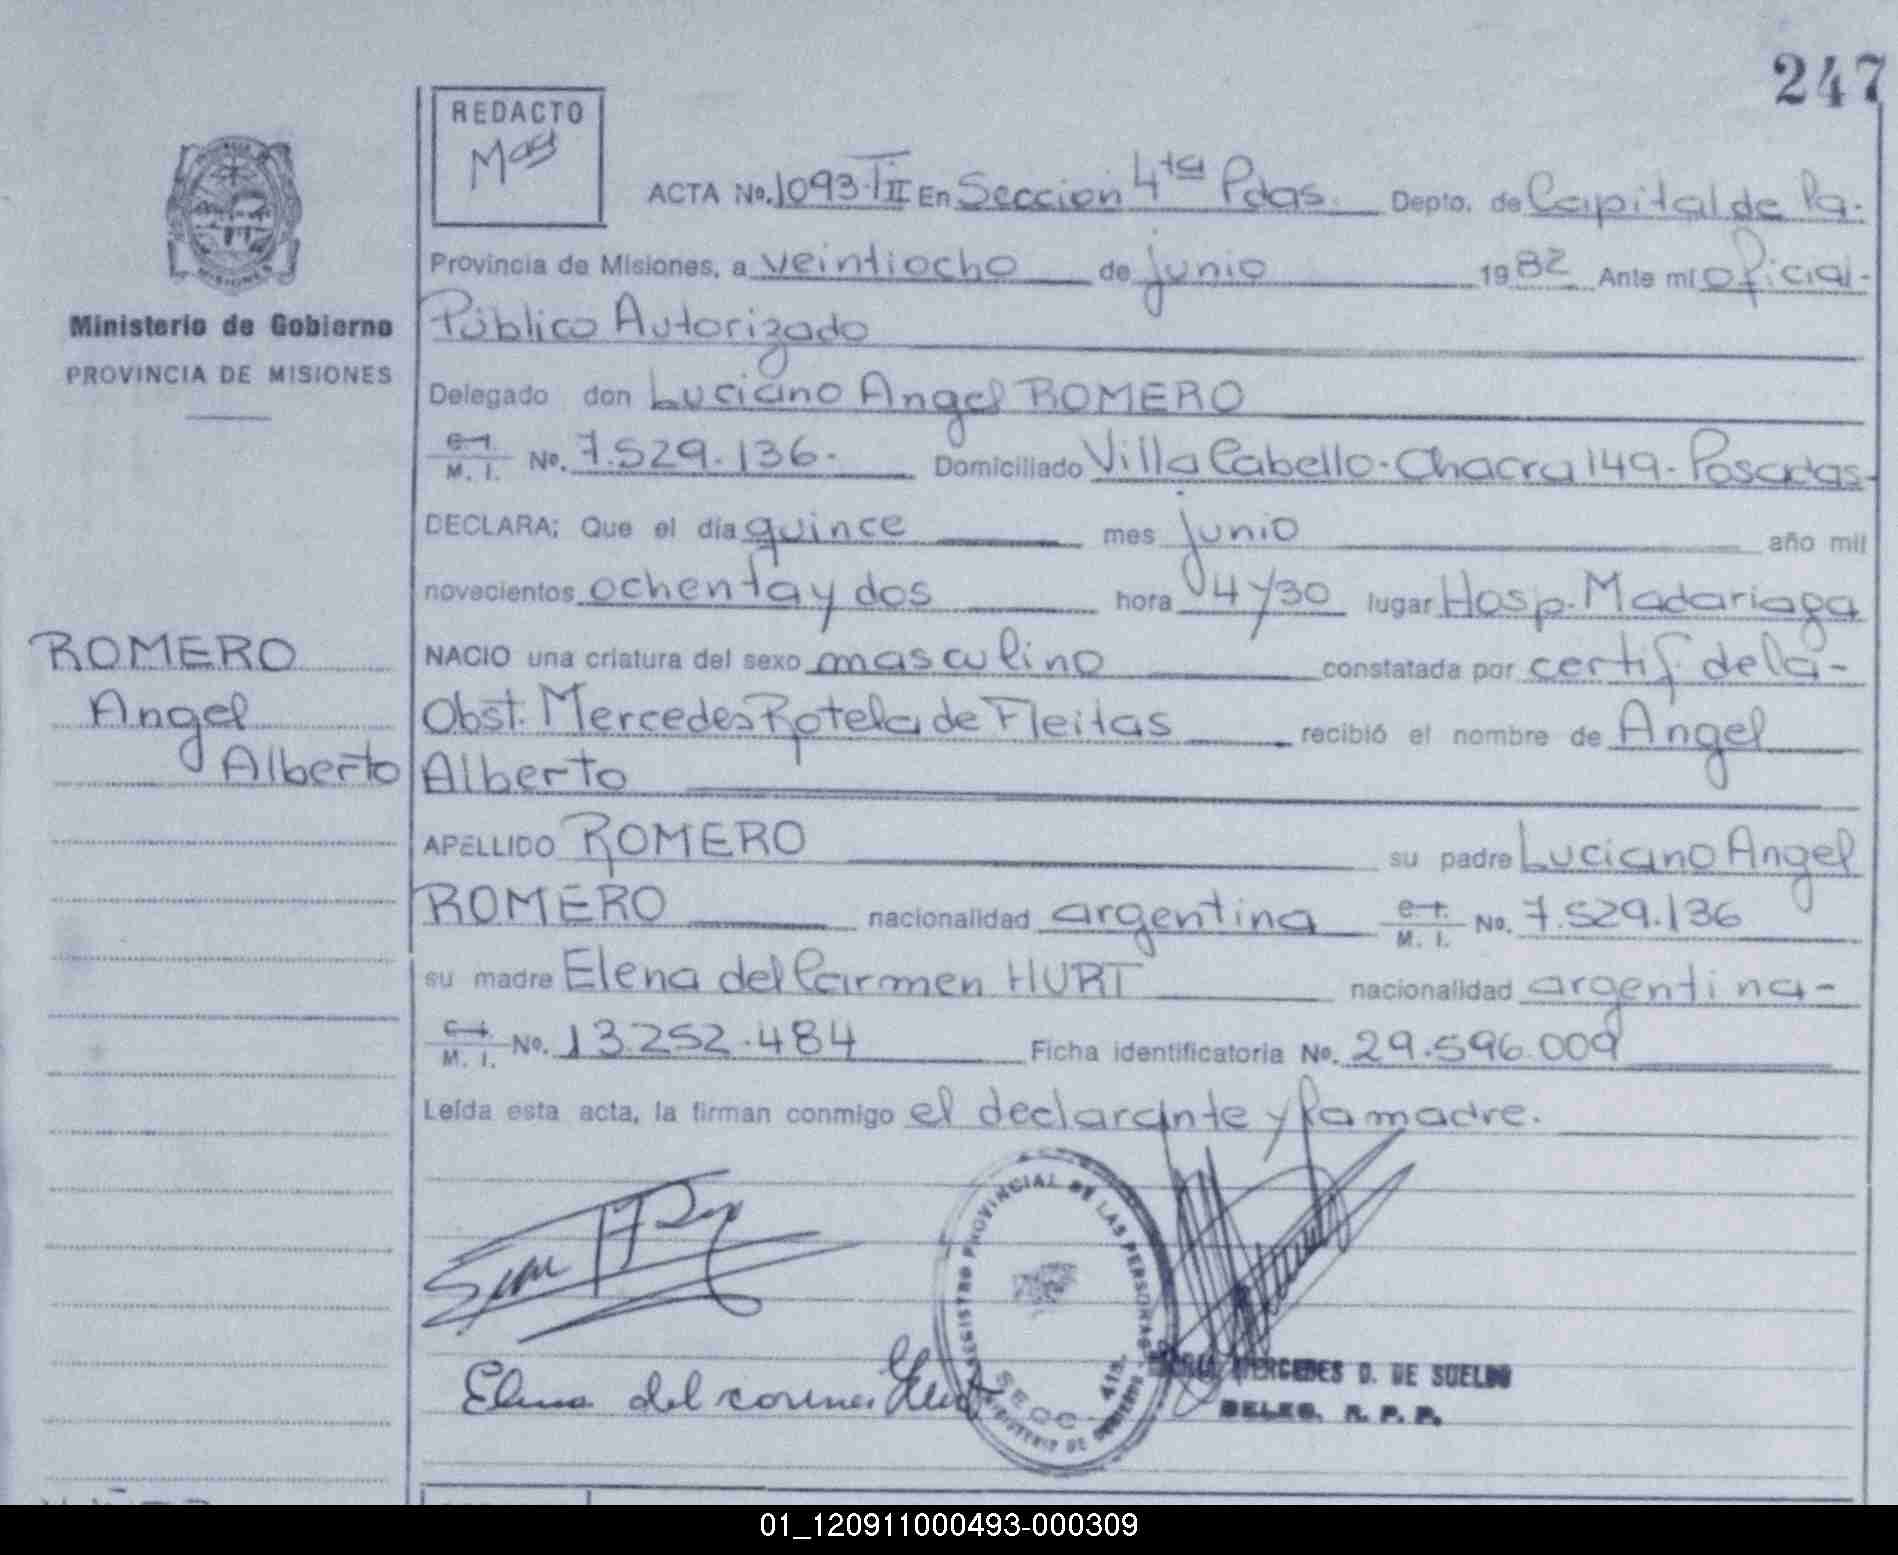 247
REDACTO
ACTA No. 1093-TII En Sección 4ta Pdas. Depto. de Capital de la-
Provincia de Misiones, a veintiocho de junio 1982 Ante mí oficial-
Público Autorizado
Ministerio de Gobierno
PROVINCIA DE MISIONES
Delegado don Luciano Angel ROMERO
M. I. No. 7.529.136. Domiciliado Villa Cabello-Chacra 149-Posadas-
DECLARA; Que el día quince mes junio año mil
novecientos ochenta y dos hora 4 y 30 lugar Hosp. Madariaga
NACIO una criatura del sexo masculino constatada por certif. de la-
Obst. Mercedes Rotela de Fleitas recibió el nombre de Angel
Alberto
ROMERO
Angel
Alberto
APELLIDO ROMERO su padre Luciano Angel
ROMERO nacionalidad argentina M. I. No. 7.529.136
su madre Elena del Carmen HURT nacionalidad argentina-
M. I. No. 13252.484 Ficha identificatoria No. 29.596.009
Leída esta acta, la firman conmigo el declarante y la madre.
REGISTRO PROVINCIAL DE LAS PERSONAS
SECC. 4ta.
MINISTERIO DE GOBIERNO
Elena del carmen Hurt
MERCEDES D. DE SUELDO
DELEG. R. P. P.
01_120911000493-000309